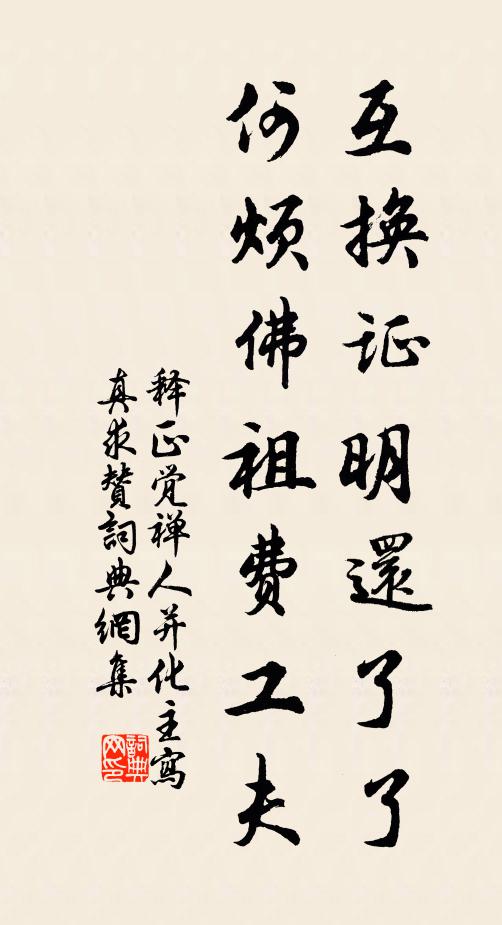 互换证明還了了
何烦佛祖费工夫
释正觉禅人并化主寫
真求赞詞典網集
詞典网印